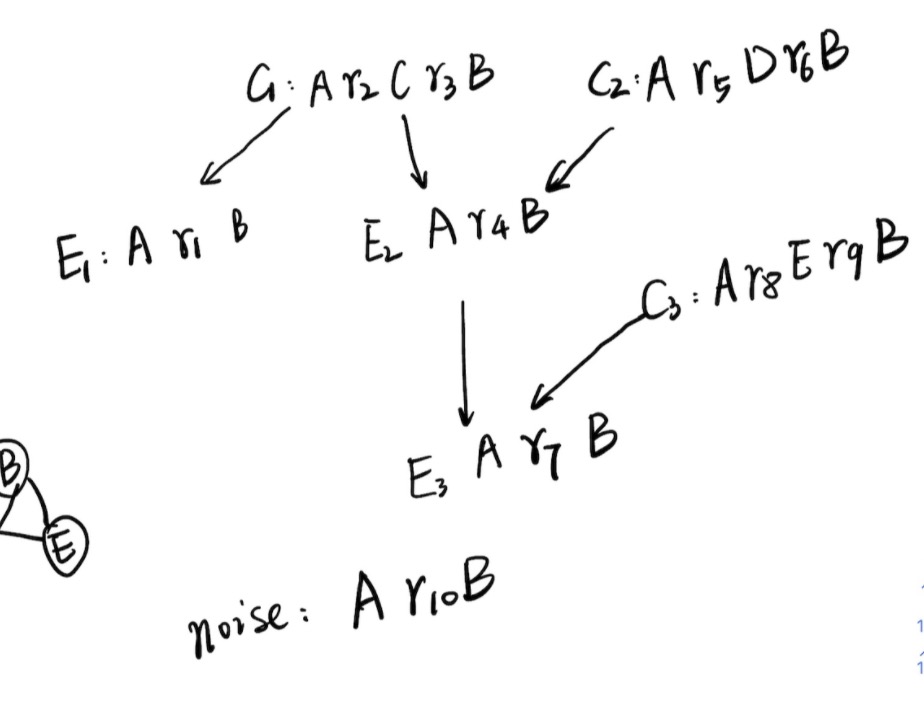 C₁: A r₂ C r₃ B
C₂: A r₅ D r₆ B
E₁: A r₁ B
E₂ A r₄ B
C₃: A r₈ E r₉ B
E₃ A r₇ B
B
E
noise: A r₁₀ B
1
1